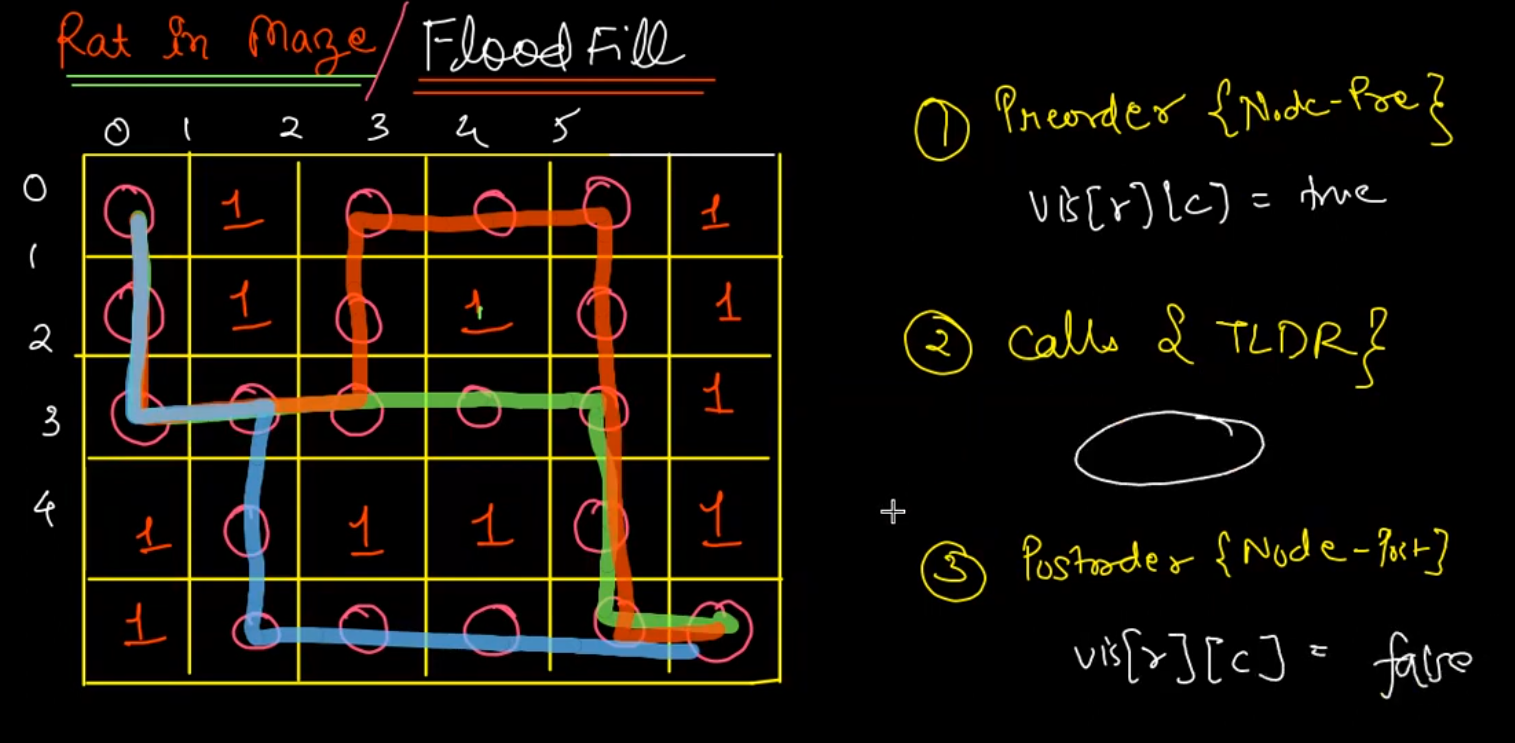 Rat in Maze / Flood Fill
0 1 2 3 4 5
0 1 1
1
1 1 1
2
1
3
4 1 1 1 1
1
① Preorder {Node-Pre}
vis[r][c] = true
② Calls { TLDR}
③ Postorder {Node-Post}
vis[r][c] = false